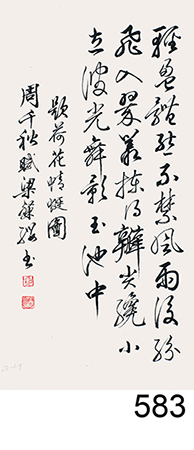 輕盈體態不禁風雨後紛
飛入翠叢揀得瓣尖纔小
立波光舞影玉池中
題荷花蜻蜓圖
周千秋賦梁粲纓書
583